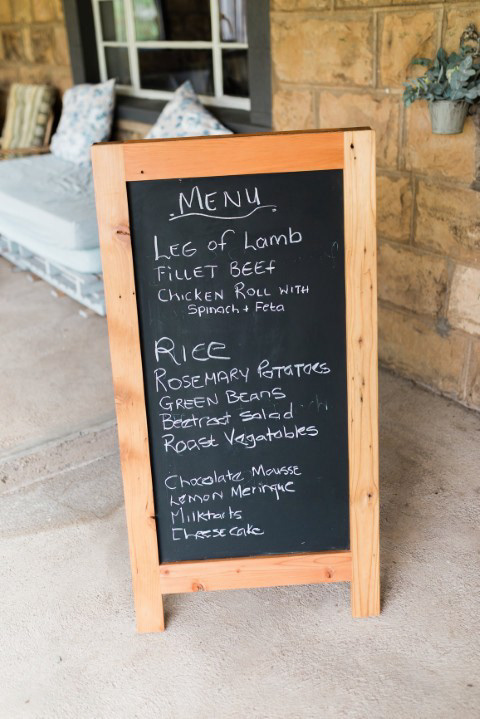 MENU
LEG of Lamb
FILLET BEEf
CHICKEN ROLL WITH
Spinach + Feta
RICE
ROSEMARY POTATOES
GREEN BEANS
Beetroot Salad
Roast Vegatables
Chocolate Mousse
Lemon Meringue
Milktarts
Cheesecake